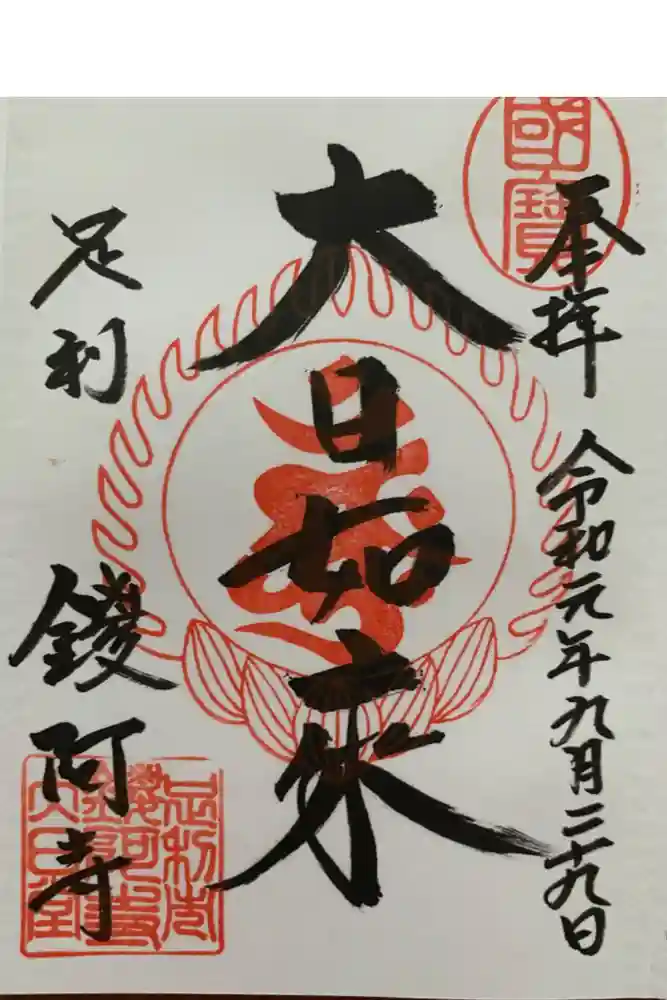 國寶
奉拝
令和元年九月二十九日
大日如来
足利
鑁阿寺
足利市
鑁阿寺
大日堂